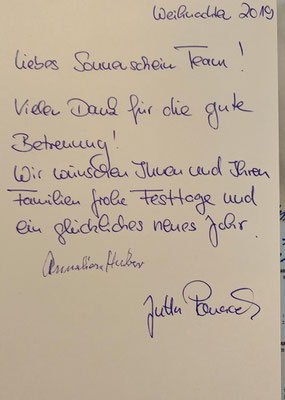 Weihnachten 2019
Liebes Sonnenschein Team!
Vielen Dank für die gute
Betreuung!
Wir wünschen Ihnen und Ihren
Familien frohe Festtage und
ein glückliches neues Jahr.
Huber
Jutta